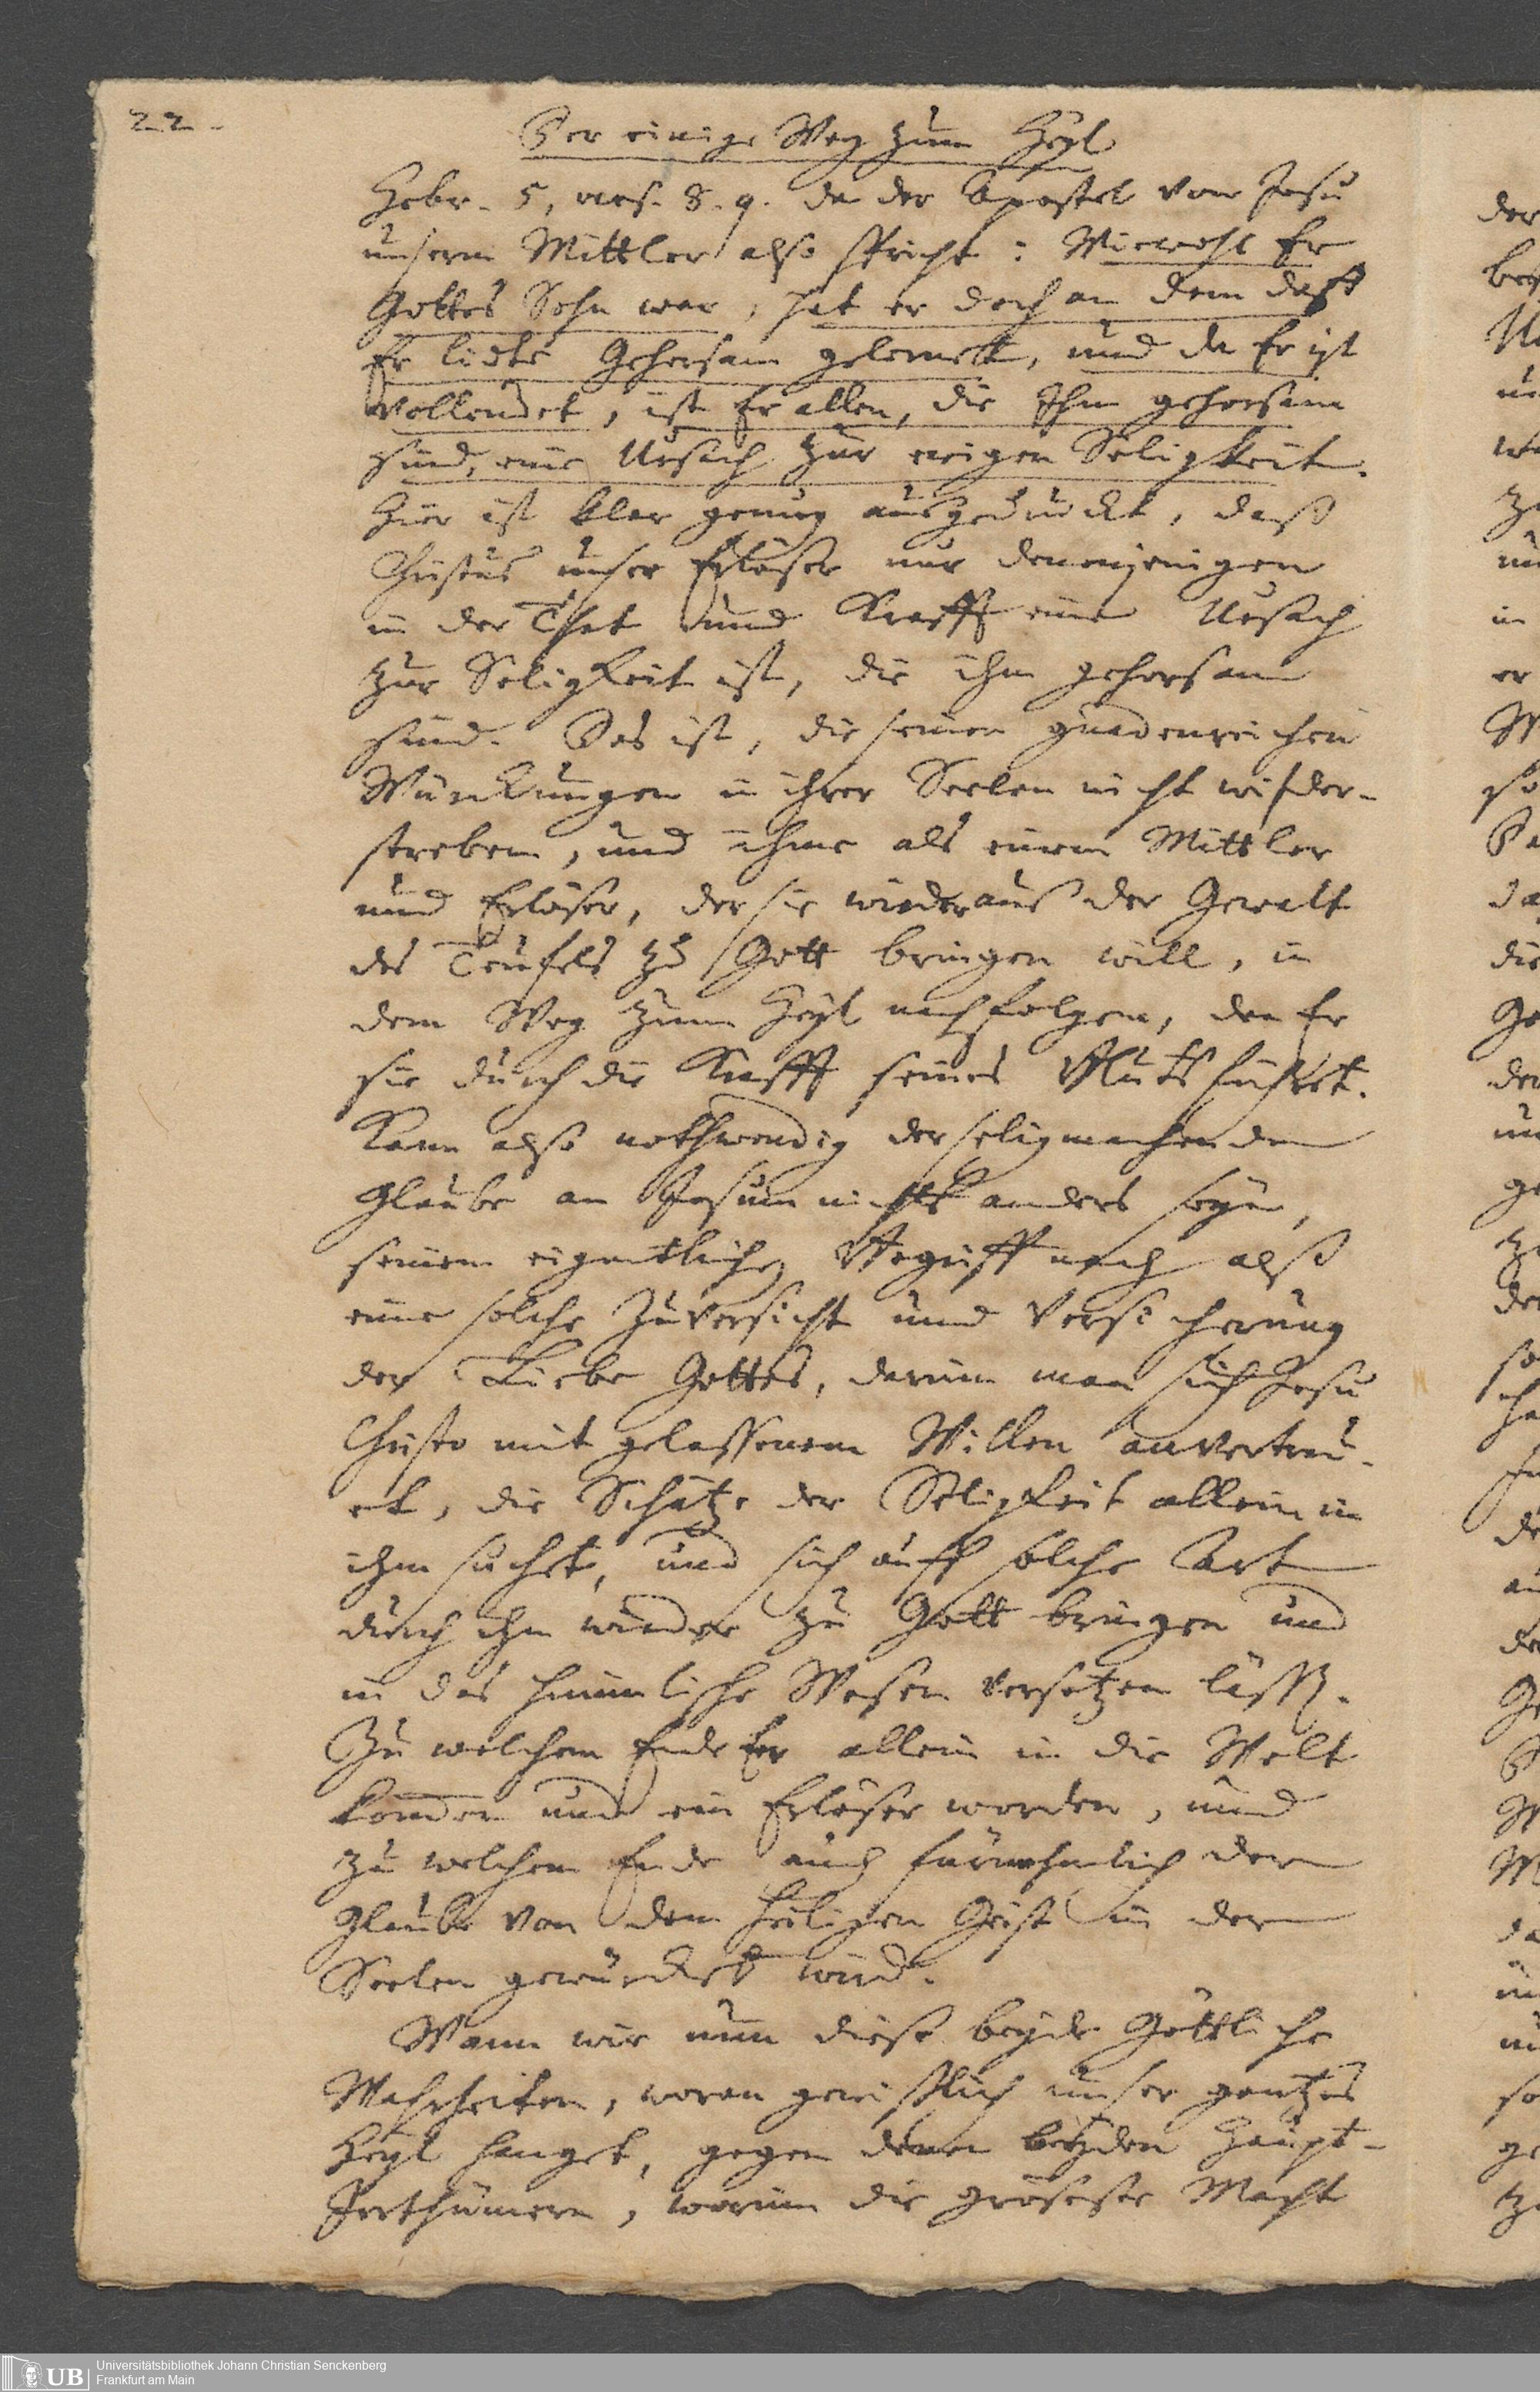 22.
Der einige Weg zum Heyl
Hebr. 5, vers. 8. 9. da der Apostel von Jesu
unserm Mittler also spricht: Wiewohl Er
Gottes Sohn war, hat er doch an dem daß
Er lidte Gehorsam gelernett, und da Er ist
vollendet, ist Er allen, die Ihm gehorsam
sind, eine Ursach zur ewigen Seligkeit.
Hier ist klar genug ausgedruckt, daß
Christus unser Erlöser nur denenjenigen
in der That und Krafft eine Ursach
zur Seligkeit ist, die ihm gehorsam
sind. Das ist, die seinen gnadenreichen
Würckungen in ihrer Seelen nicht wider-
streben, und ihme als einem Mittler
und Erlöser, der sie wieder aus der Gewalt
des Teufels zu Gott bringen will, in
dem Weg zum Heyl nachfolgen, den Er
sie durch die Krafft seines Bluts führet.
Kann also nothwendig der seligmachende
Glaube an Jesum nichts anders seyn,
seinem eigentlichen Begriff nach als
eine solche Zuversicht und Versicherung
der Liebe Gottes, darinn man sich Jesu
Christo mit gelassenem Willen anvertrau-
et, die Schätze der Seligkeit allein in
ihm suchet, und sich auff solche Art
durch ihn wieder zu Gott bringen und
in das himmlische Wesen versetzen lässt.
Zu welchem Ende Er allein in die Welt
kommen und ein Erlöser worden, und
zu welchem Ende auch fürnehmlich der
Glaube von dem Heiligen Geist in der
Seelen gewürcket wird.
Wann wir nun diese beyde Göttliche
Wahrheiten, woran gewißlich unser gantzes
Heyl hanget, gegen denen beyden Haupt-
Irrthümern, worinn die gröseste Macht
UB
Universitätsbibliothek Johann Christian Senckenberg
Frankfurt am Main